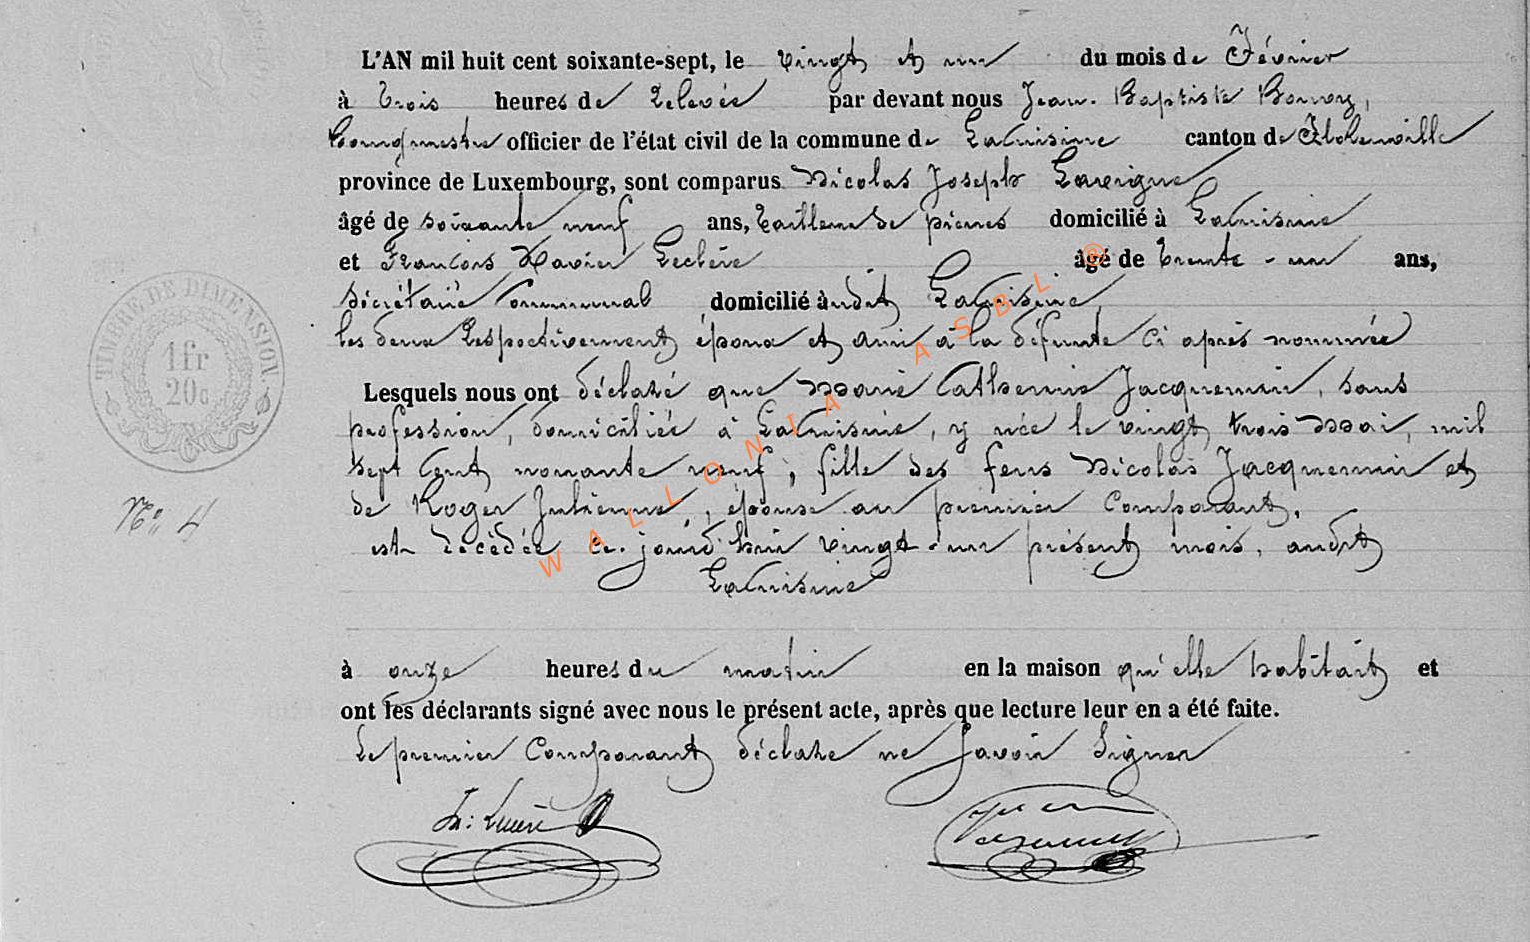 L'AN mil huit cent soixante-sept, le vingt et un du mois de Février
à trois heures de relevée par devant nous Jean-Baptiste
bourgmestre officier de l'état civil de la commune de Lacuisine canton de
province de Luxembourg, sont comparus Nicolas Joseph Lavigne
âgé de soixante neuf ans, tailleur de pierres domicilié à Lacuisine
et François Xavier Leclère âgé de trente-un ans,
secrétaire communal domicilié àudit Lacuisine
les deux respectivement époux et ami à la défunte ci après nommée
Lesquels nous ont déclaré que Marie Catherine Jacquemin, sans
profession, domiciliée à Lacuisine, y née le vingt trois Mai, mil
sept cent nonante neuf, fille des feus Nicolas Jacquemin et
de Roger Julienne, épouse au premier comparant,
est décédée ce jourd'hui vingt-un présent mois, audit
Lacuisine
à onze heures du matin en la maison qu'elle habitait et
ont les déclarants signé avec nous le présent acte, après que lecture leur en a été faite.
Le premier comparant déclare ne savoir signer
TIMBRE DE DIMENSION.
1 fr
20c
N° 4
WALLONIA ASBL ®